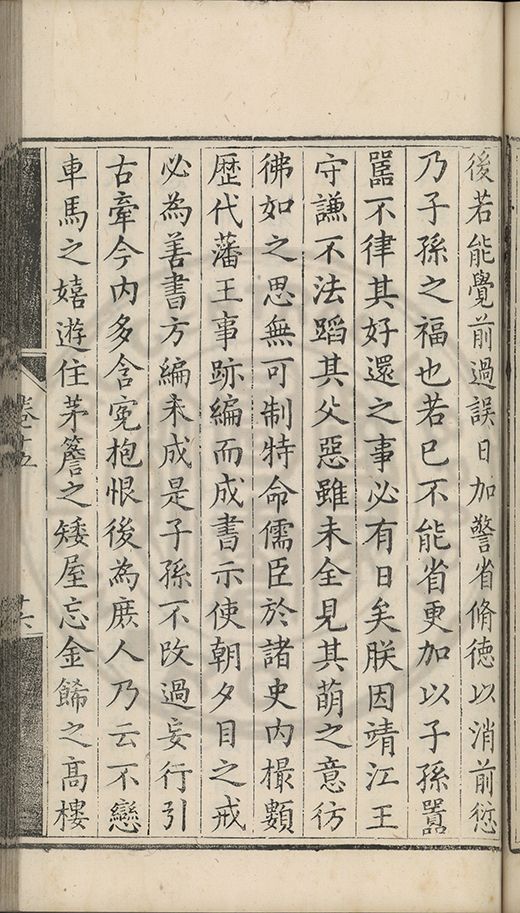 後若能覺前過誤日加警省脩德以消前愆
乃子孫之福也若已不能省更加以子孫嚚
嚚不律其好還之事必有日矣朕因靖江王
守謙不法蹈其父惡雖未全見其萌之意彷
彿如之思無可制特命儒臣於諸史内撮𩔖
歷代藩王事跡編而成書示使朝夕目之戒
必為善書方編未成是子孫不改過妄行引
古牽今内多含寃抱恨後為庶人乃云不戀
車馬之嬉遊住茅簷之矮屋忘金餙之髙樓
卷十五
十六